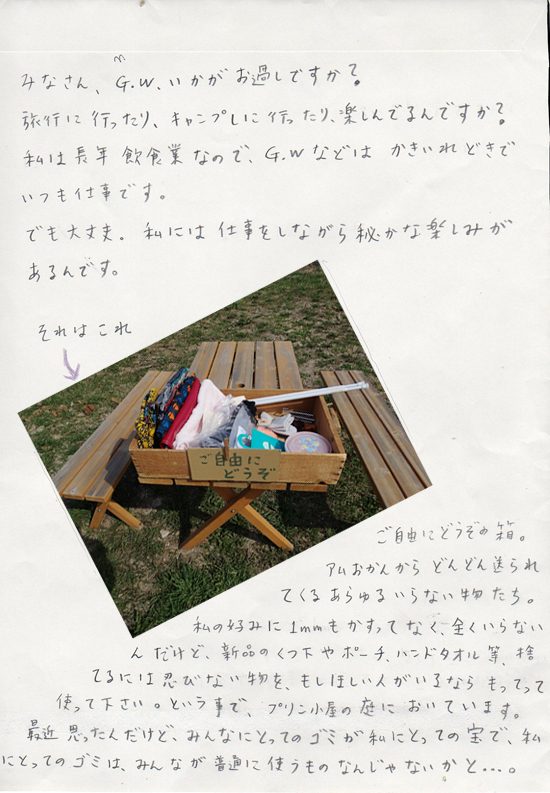 みなさん、G.W.いかがお過しですか?
旅行に行ったり、キャンプしに行ったり、楽しんでるんですか?
私は長年飲食業なので、G.Wなどは かきいれどきで
いつも仕事です。
でも大丈夫。私には仕事をしながら秘かな楽しみが
あるんです。
それはこれ
ご自由に
どうぞ
ご自由にどうぞの箱。
アムおかんから どんどん送られ
てくるあらゆるいらない物たち。
私の好みに1mmもかすってなく、全くいらない
んだけど、新品のくつ下やポーチ、ハンドタオル等、捨
てるには忍びない物を、もしほしい人がいるなら もってって
使って下さい。という事で、プリン小屋の庭においています。
最近思ったんだけど、みんなにとってのゴミが私にとっての宝で、私
にとってのゴミは、みんなが普通に使うものなんじゃないかと…。